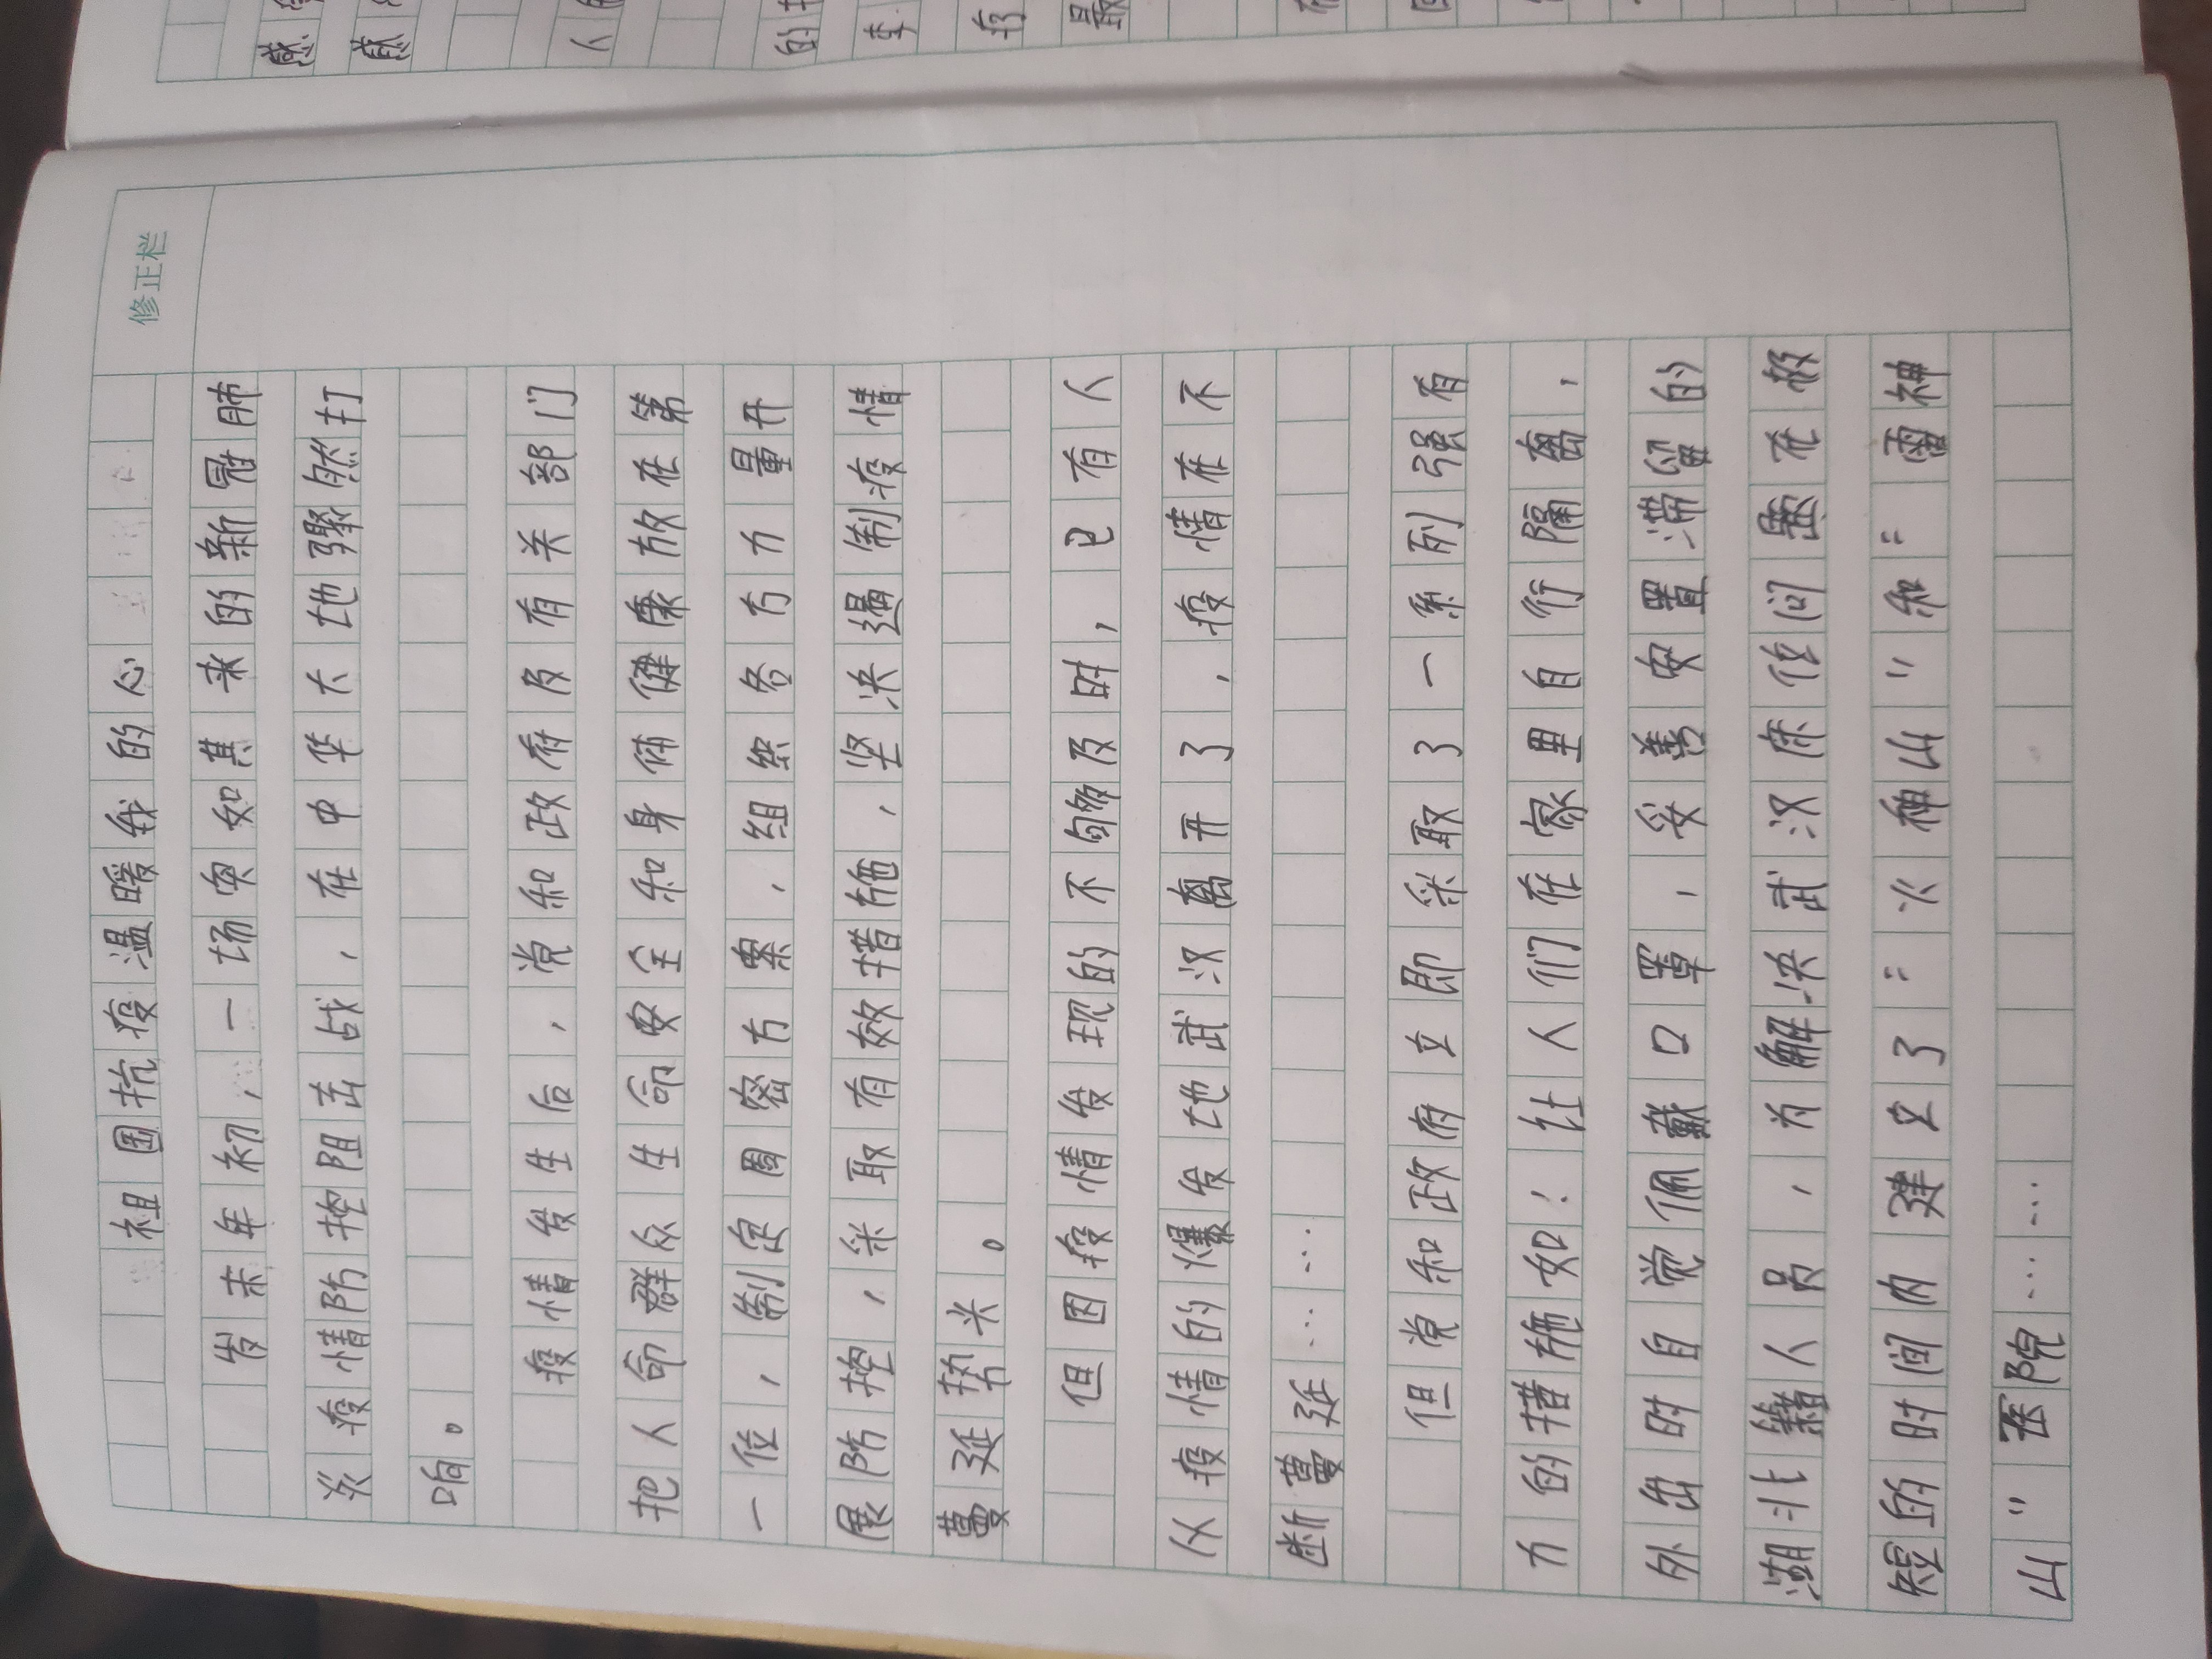 修正栏
祖国抗疫温暖我的心
发末年初，一场突如其来的新冠肺
炎疫情防控阻击战，在中华大地骤然打
响。
疫情发生后，党和政府及有关部门
把人命群众生命安全和身体健康放在第
一位，制定周密方案，组织各方力量开
展防控，采取有效措施，坚决遏制疫情
蔓延势头。
但因疫情发现的不够及时，已有人
从疫情的爆发地武汉离开了，疫情在不
断蔓延……
但党和政府立即采取了一系列强有
力的措施如：让人们在家里自行隔离，
外出时自觉佩戴口罩，妥善安置滞留的
湖北籍人员，为解决武汉床位问题在极
短的时间内建立了“火神山”和“雷神
山”医院……